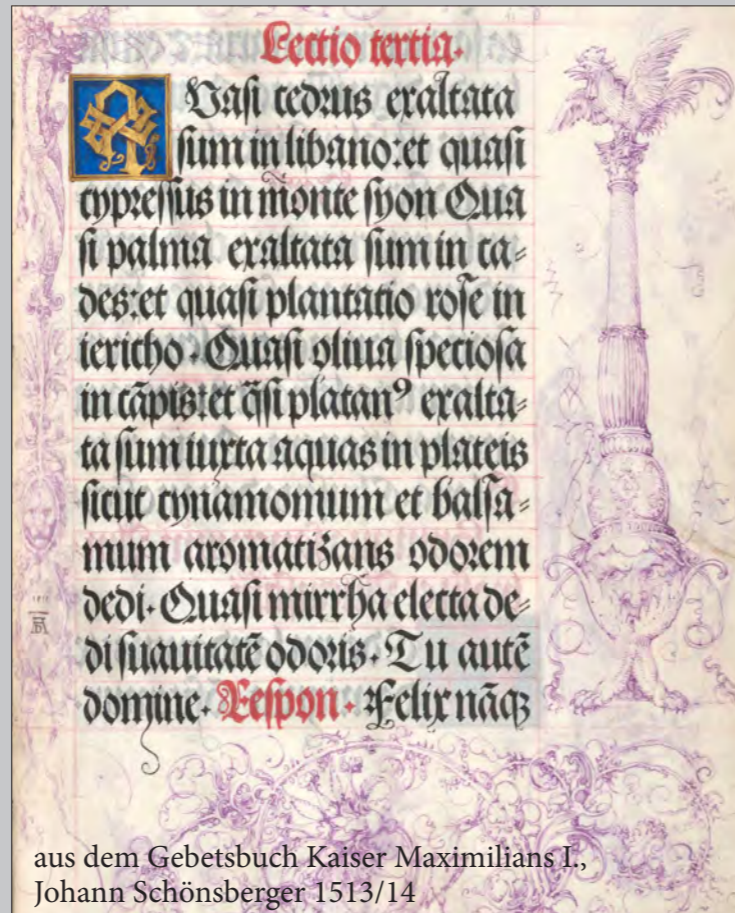 Lectio tertia.
QVaſi cedrus exaltata
ſum in libano: et quaſi
cypreſſus in monte ſyon Qua
ſi palma exaltata ſum in ca⸗
des: et quaſi plantatio roſe in
iericho. Quaſi oliua ſpecioſa
in cāpis: et q̄ſi platanꝰ exalta⸗
ta ſum iuxta aquas in plateis
ſicut cynamomum et balſa⸗
mum aromatizans odorem
dedi. Quaſi mirrha electa de⸗
di ſuauitatē odoris. Tu autē
domine. Reſpon. Felix nāqꝫ
AD
aus dem Gebetsbuch Kaiser Maximilians I.,
Johann Schönsberger 1513/14